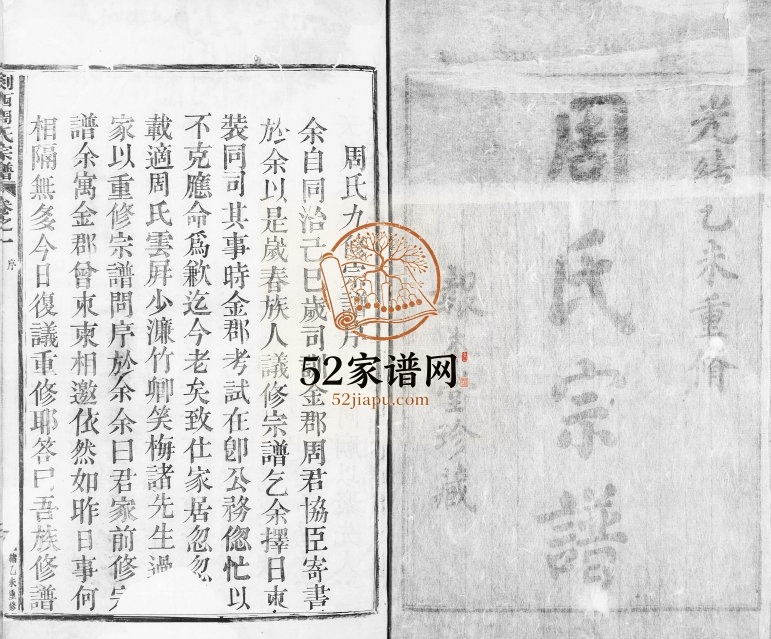 光緒乙未重脩
周氏宗譜
報本堂珍藏
周氏九宗譜序
余自同治己巳歲司金郡周君協臣寄書
於余以是歲春族人議修宗譜乞余擇日柬
裝同司其事時金郡考試在卽公務偬忙以
不克應命爲歉迄今老矣致仕家居忽忽
載適周氏雲屏少濂竹卿笑梅諸先生過
家以重修宗譜問序於余余曰君家前修宗
譜余寓金郡曾柬柬相邀依然如昨日事何
相隔無多今日復議重修耶答曰吾族修譜
剡西周氏宗譜
卷之一
序
緒乙未重修
52家谱网
52jiapu.com